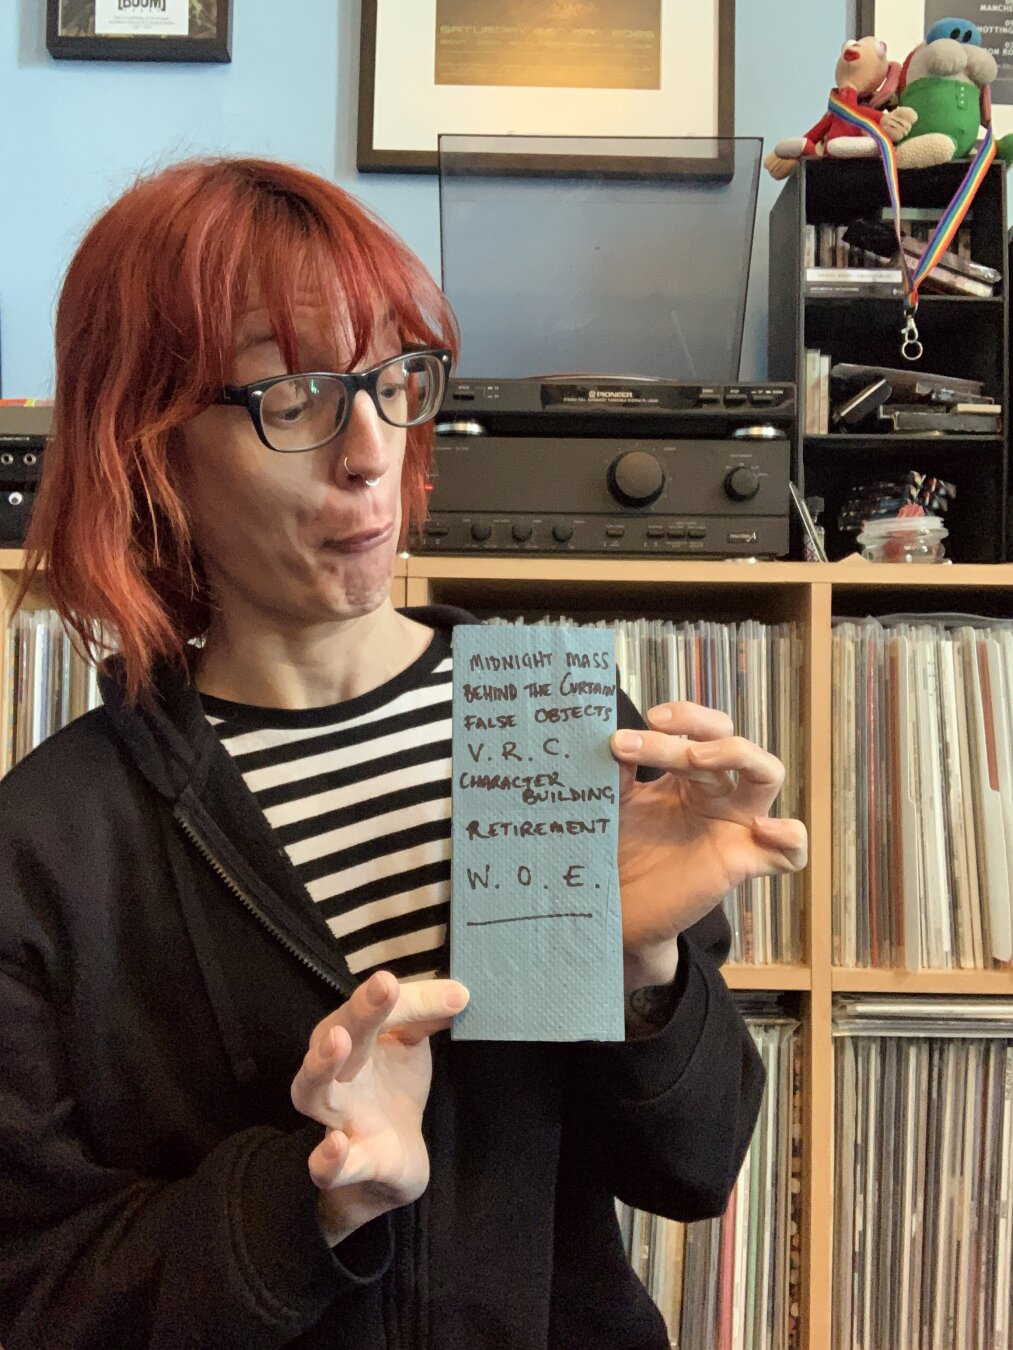 [BOOM]
SATURDAY
MANCHE
NOTTING
ON RO
PIONEER
MIDNIGHT MASS
BEHIND THE CURTAIN
FALSE OBJECTS
V.R.C.
CHARACTER
BUILDING
RETIREMENT
W.O.E.